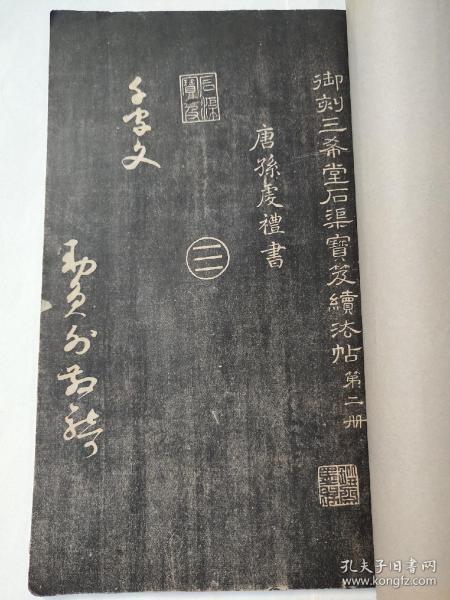 御刻三希堂石渠寶笈續法帖第二冊
唐孫虔禮書
石渠寶笈
三
千字文
勅員外散騎
孔夫子旧书网
www.kongfz.com